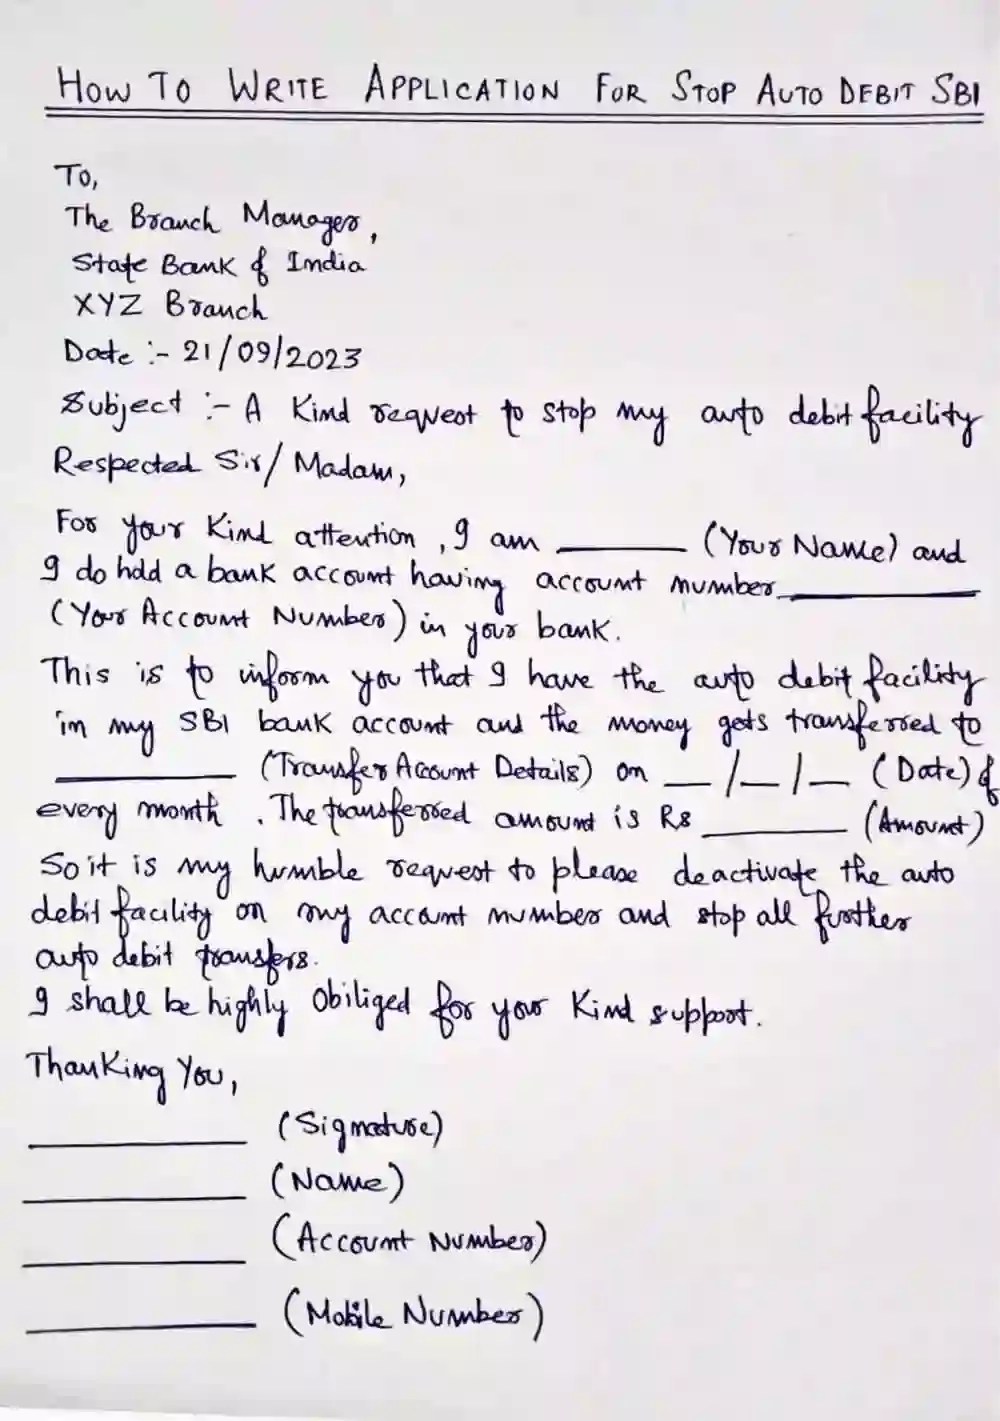 HOW TO WRITE APPLICATION FOR STOP AUTO DEBIT SBI
To,
The Branch Manager,
State Bank of India
XYZ Branch
Date :- 21/09/2023
Subject :- A Kind request to stop my auto debit facility
Respected Sir/ Madam,
For your Kind attention, I am ________ (Your Name) and
I do hold a bank account having account number ________
(Your Account Number) in your bank.
This is to inform you that I have the auto debit facility
in my SBI bank account and the money gets transferred to
________ (Transfer Account Details) on __/__/__ (Date) of
every month. The transferred amount is Rs ________ (Amount)
So it is my humble request to please deactivate the auto
debit facility on my account number and stop all further
auto debit transfers.
I shall be highly Obiliged for your Kind support.
Thanking You,
________ (Signature)
________ (Name)
________ (Account Number)
________ (Mobile Number)